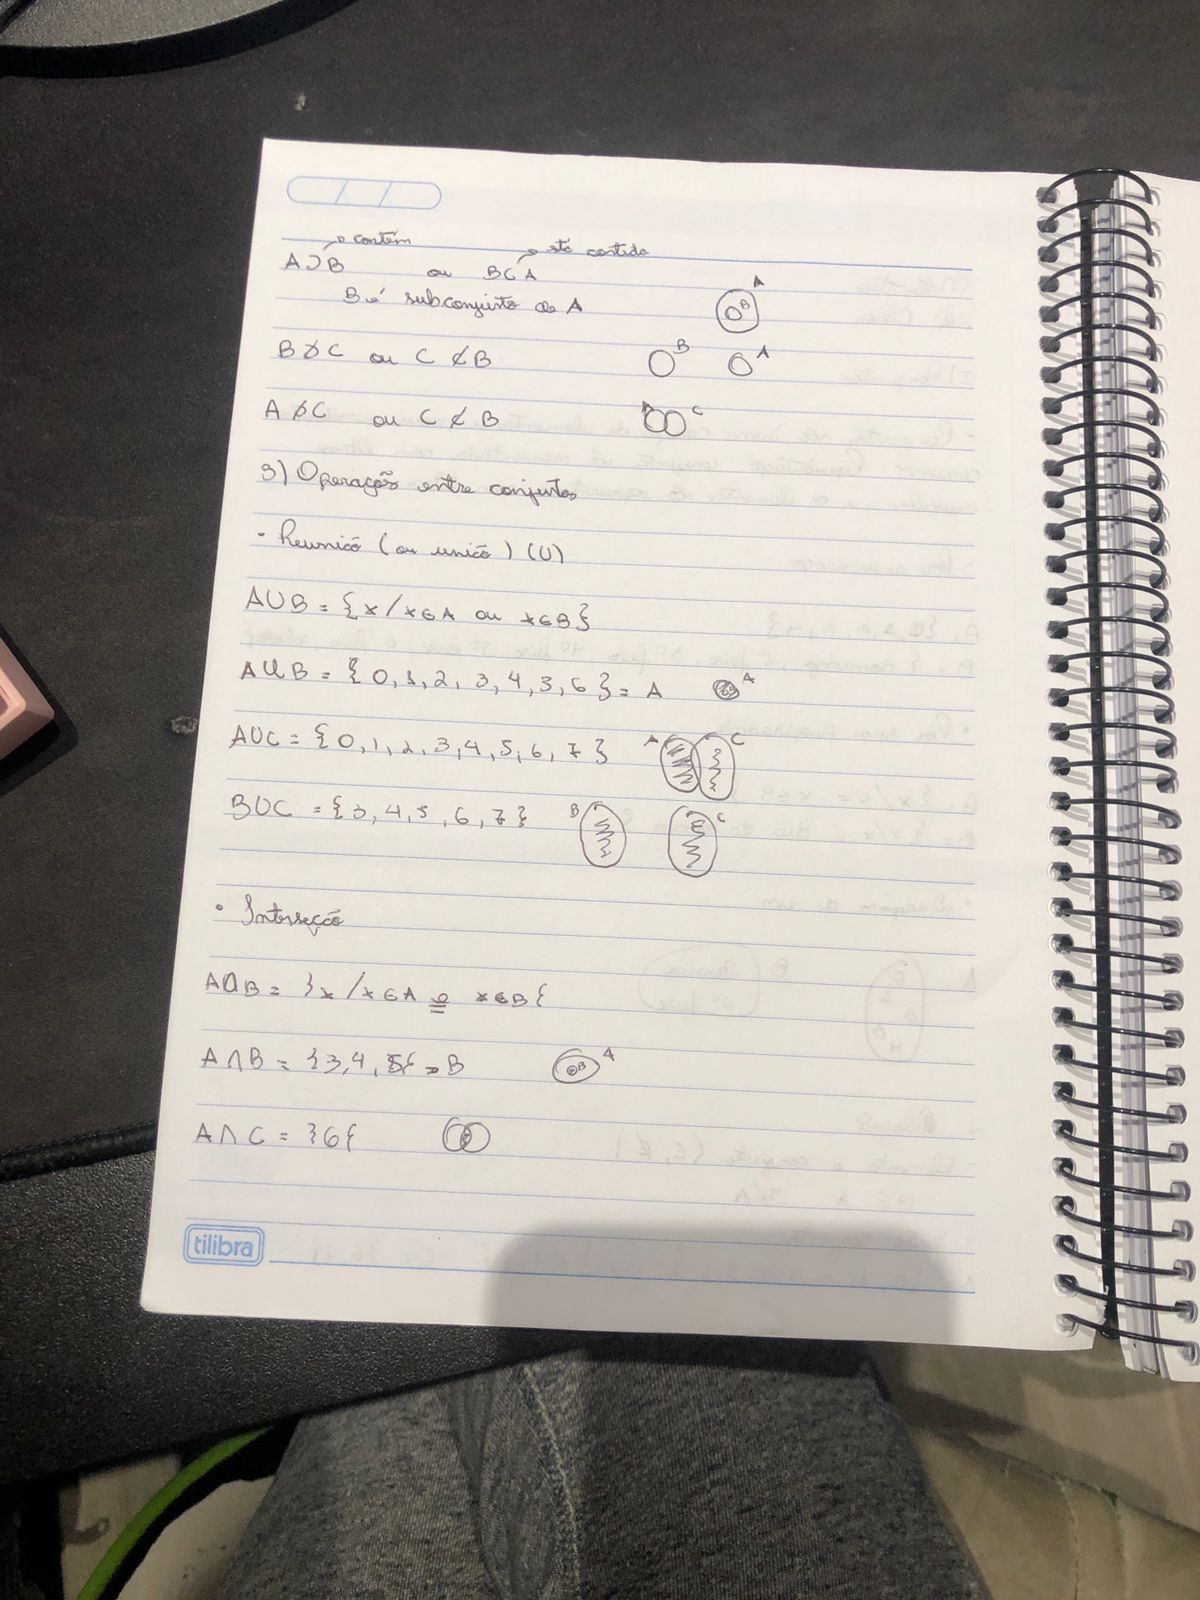 contém está contido
A⊃B ou B⊂A
B é subconjunto de A A B
B⊅C ou C⊄B B A
A⊅C ou C⊄B A C
3) Operações entre conjuntos
• Reunião (ou união) (U)
AUB = {x/x∈A ou x∈B}
AUB = {0,1,2,3,4,5,6} = A A
AUC = {0,1,2,3,4,5,6,7} A C
BUC = {3,4,5,6,7} B C
• Interseção
A∩B = }x/x∈A e x∈B{
A∩B = }3,4,5{ = B B A
A∩C = }6{
tilibra